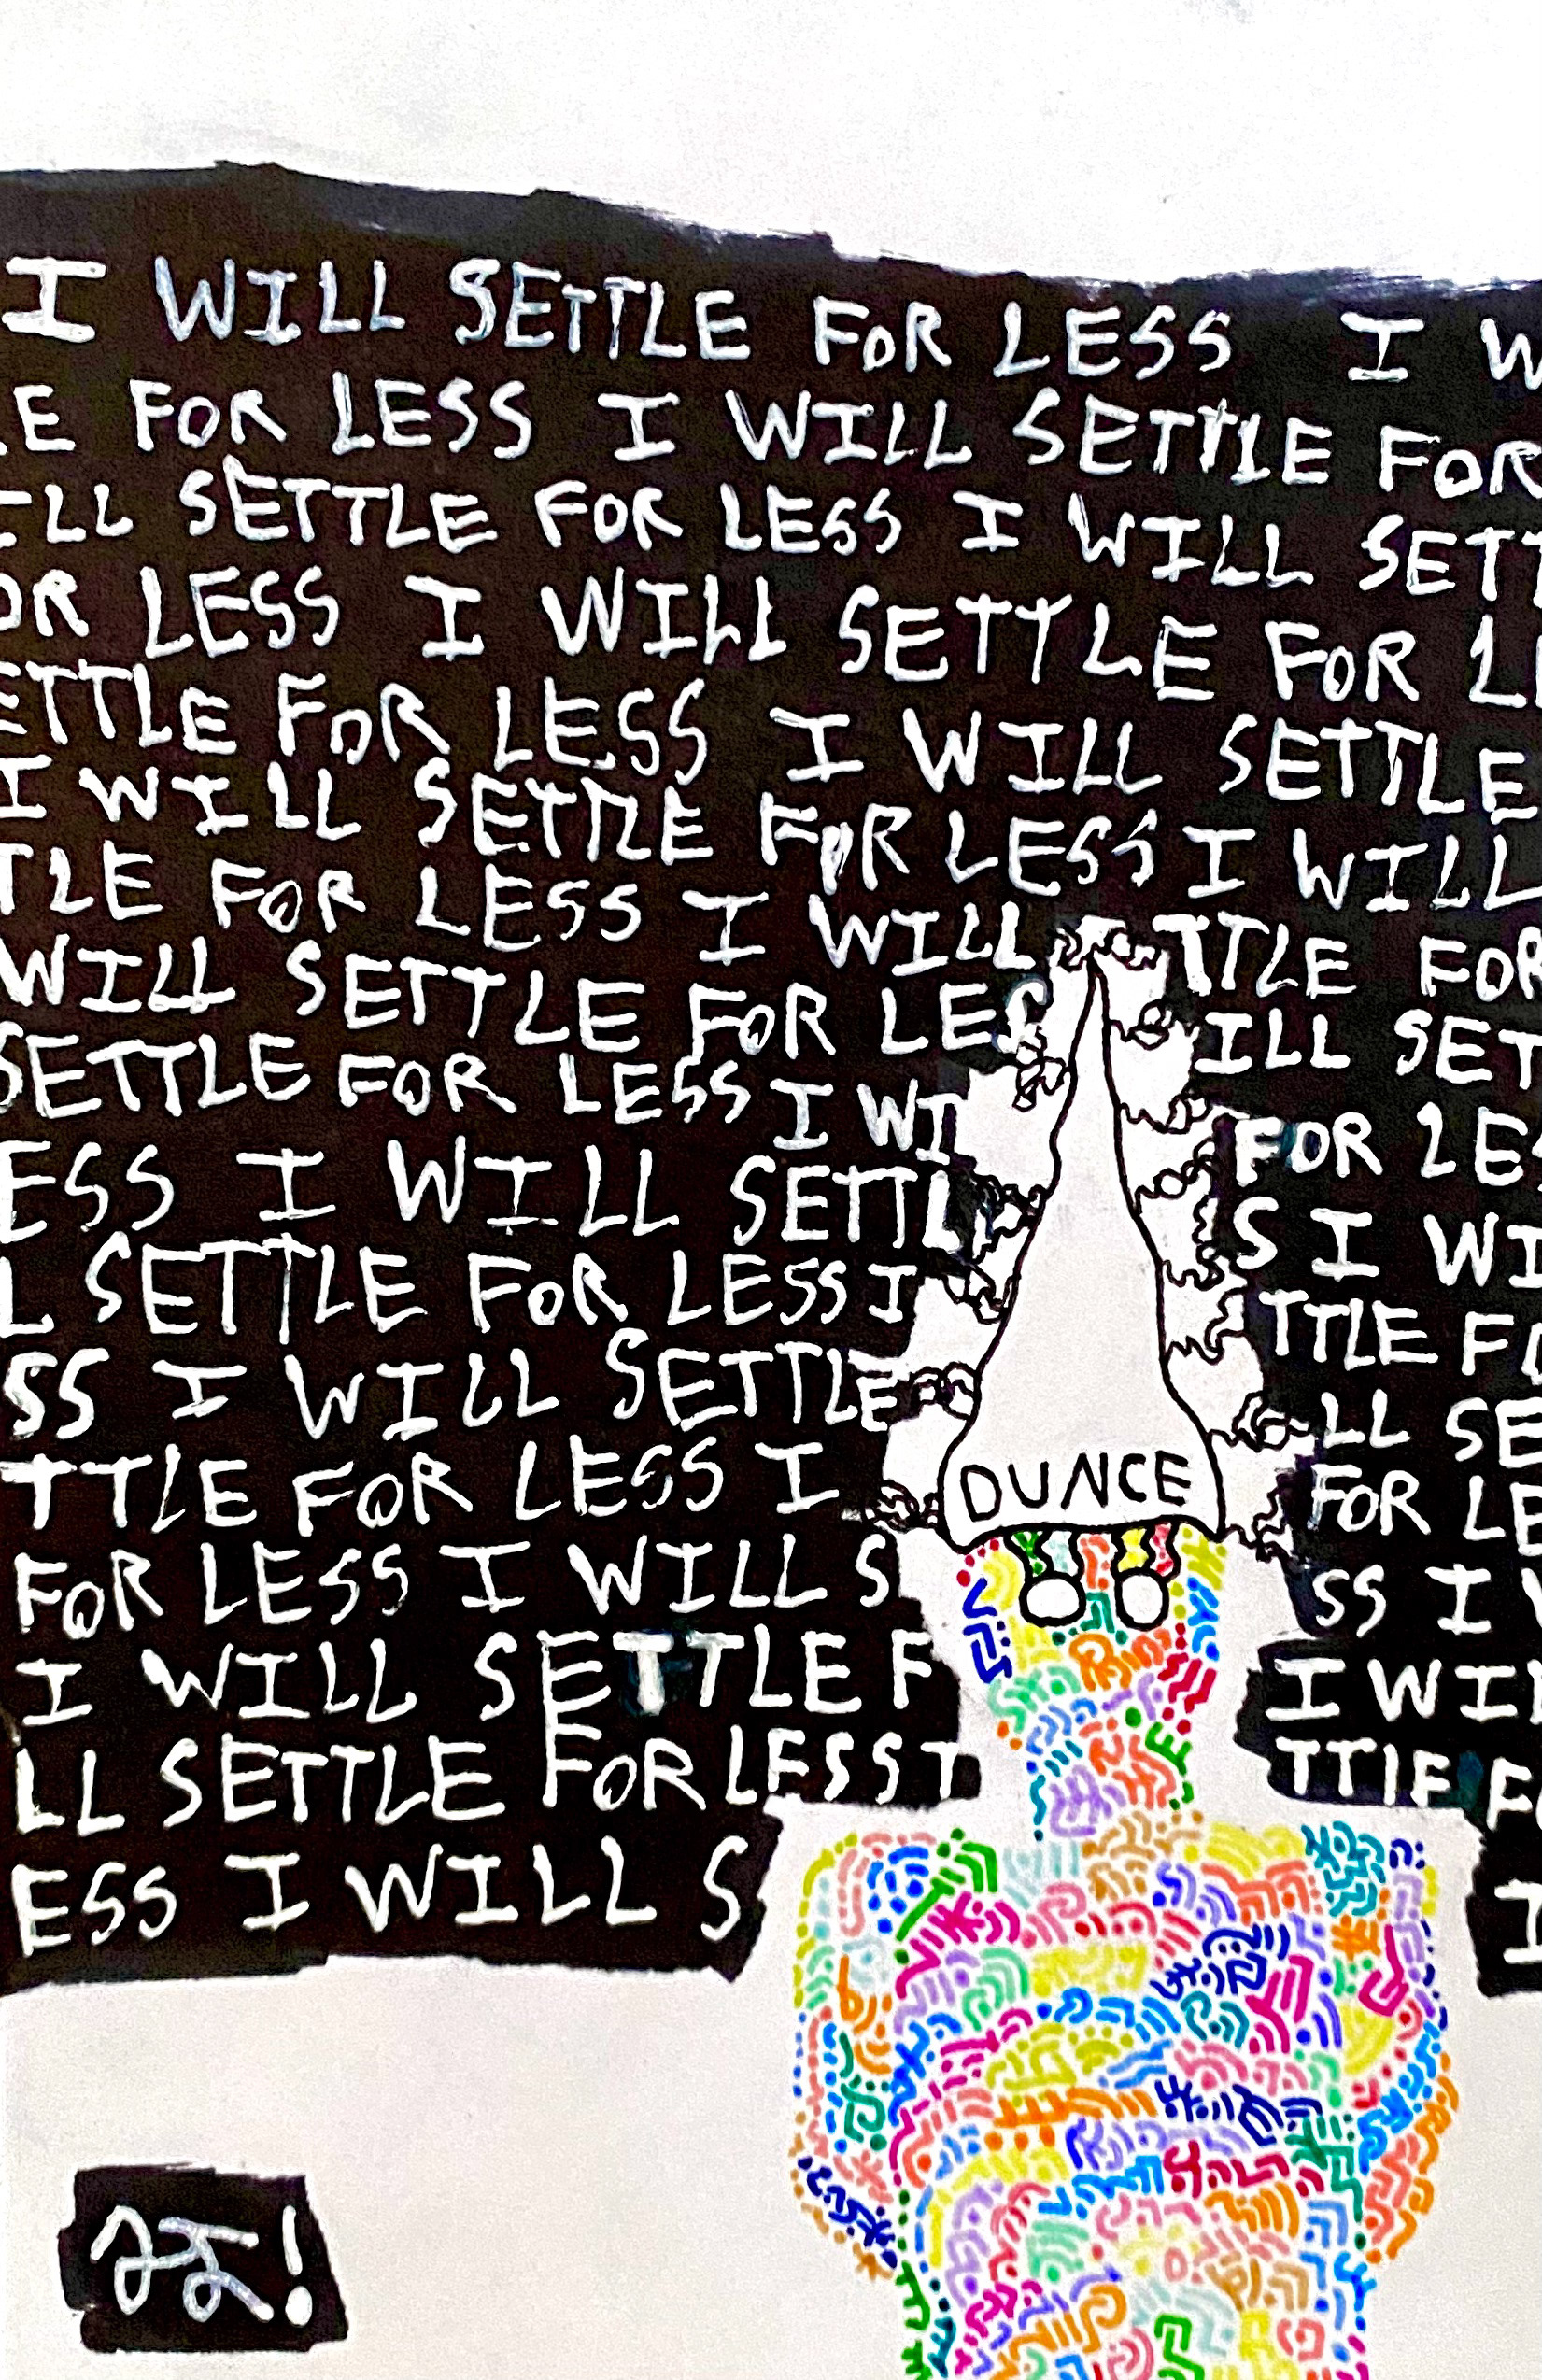 I WILL SETTLE FOR LESS I W
LE FOR LESS I WILL SETTLE FOR
ILL SETTLE FOR LESS I WILL SETT
OR LESS I WILL SETTLE FOR LE
ETTLE FOR LESS I WILL SETTLE
I WILL SETTLE FOR LESS I WILL
TLE FOR LESS I WILL TTLE FOR
WILL SETTLE FOR LES ILL SET
SETTLE FOR LESS I WI FOR LES
ESS I WILL SETTL S I WI
L SETTLE FOR LESS I TTLE FO
SS I WILL SETTLE LL SE
TTLE FOR LESS I FOR LE
DUNCE
FOR LESS I WILL S SS I W
I WILL SETTLE F I WIL
LL SETTLE FOR LESS I TTLE FO
ESS I WILL S I